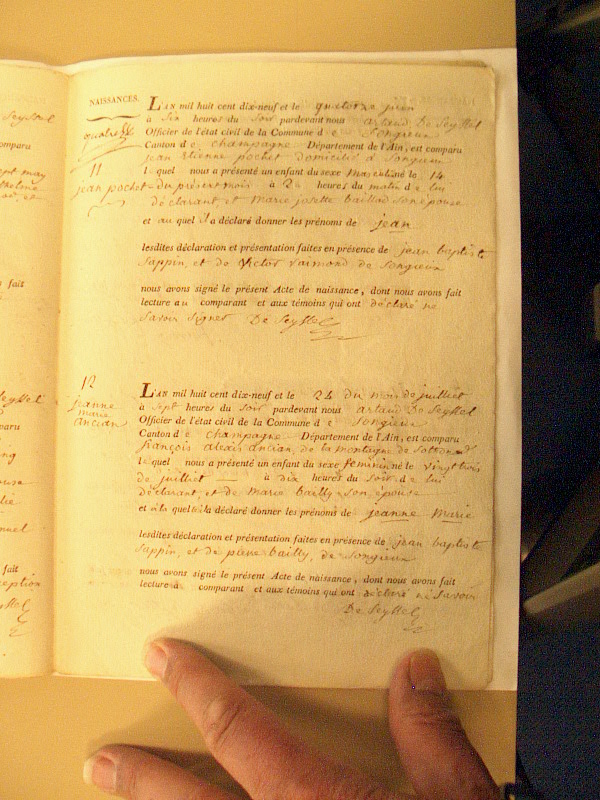 NAISSANCES.
quatre
11
jean pochet
LAN mil huit cent dix-neuf et le quatorze juin
à six heures du soir pardevant nous artaud De Seyssel
Officier de l'état civil de la Commune de Songieux
Canton de champagne Département de l'Ain, est comparu
jean Etienne pochet domicilié à Songieux
lequel nous a présenté un enfant du sexe masculin né le 14
du présent mois à 2 heures du matin de lui
déclarant et marie josette baillod son épouse
et auquel il a déclaré donner les prénoms de jean
lesdites déclaration et présentation faites en présence de jean baptiste
Sappin, et de Victor raimond de Songieux
nous avons signé le présent Acte de naissance, dont nous avons fait
lecture au comparant et aux témoins qui ont déclaré ne
Savoir Signer De Seyssel
12
jeanne
marie
ancian
LAN mil huit cent dix-neuf et le 24 du mois de juilliet
à sept heures du soir pardevant nous artaud De Seyssel
Officier de l'état civil de la Commune de Songieux
Canton de champagne Département de l'Ain, est comparu
françois alexis ancian, de la montagne de
lequel nous a présenté un enfant du sexe féminin né le vingt trois
de juilliet à dix heures du Soir de lui
déclarant, et de marie bailly son épouse
et à laquelle il a déclaré donner les prénoms de jeanne Marie
lesdites déclaration et présentation faites en présence de jean baptiste
Sappin, et de pierre bailly, de Songieux
nous avons signé le présent Acte de naissance, dont nous avons fait
lecture à comparant et aux témoins qui ont déclaré ne Savoir
De Seyssel